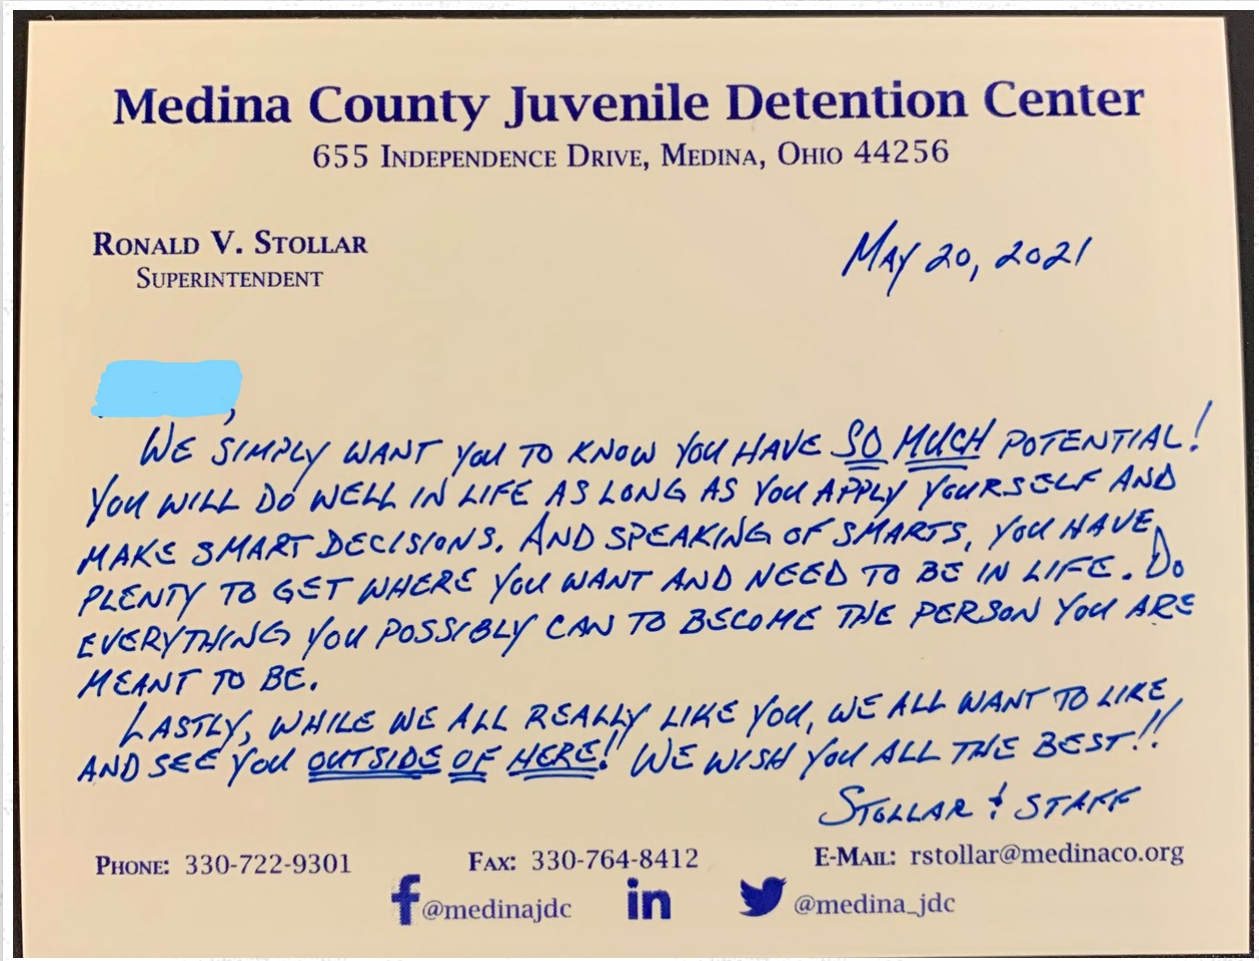 Medina County Juvenile Detention Center
655 Independence Drive, Medina, Ohio 44256
Ronald V. Stollar
Superintendent
May 20, 2021
,
We simply want you to know you have so much potential!
You will do well in life as long as you apply yourself and
make smart decisions. And speaking of smarts, you have
plenty to get where you want and need to be in life. Do
everything you possibly can to become the person you are
meant to be.
Lastly, while we all really like you, we all want to like
and see you outside of here!! We wish you all the best!!
Stollar & Staff
Phone: 330-722-9301 Fax: 330-764-8412 E-Mail: rstollar@medinaco.org
f @medinajdc in @medina_jdc